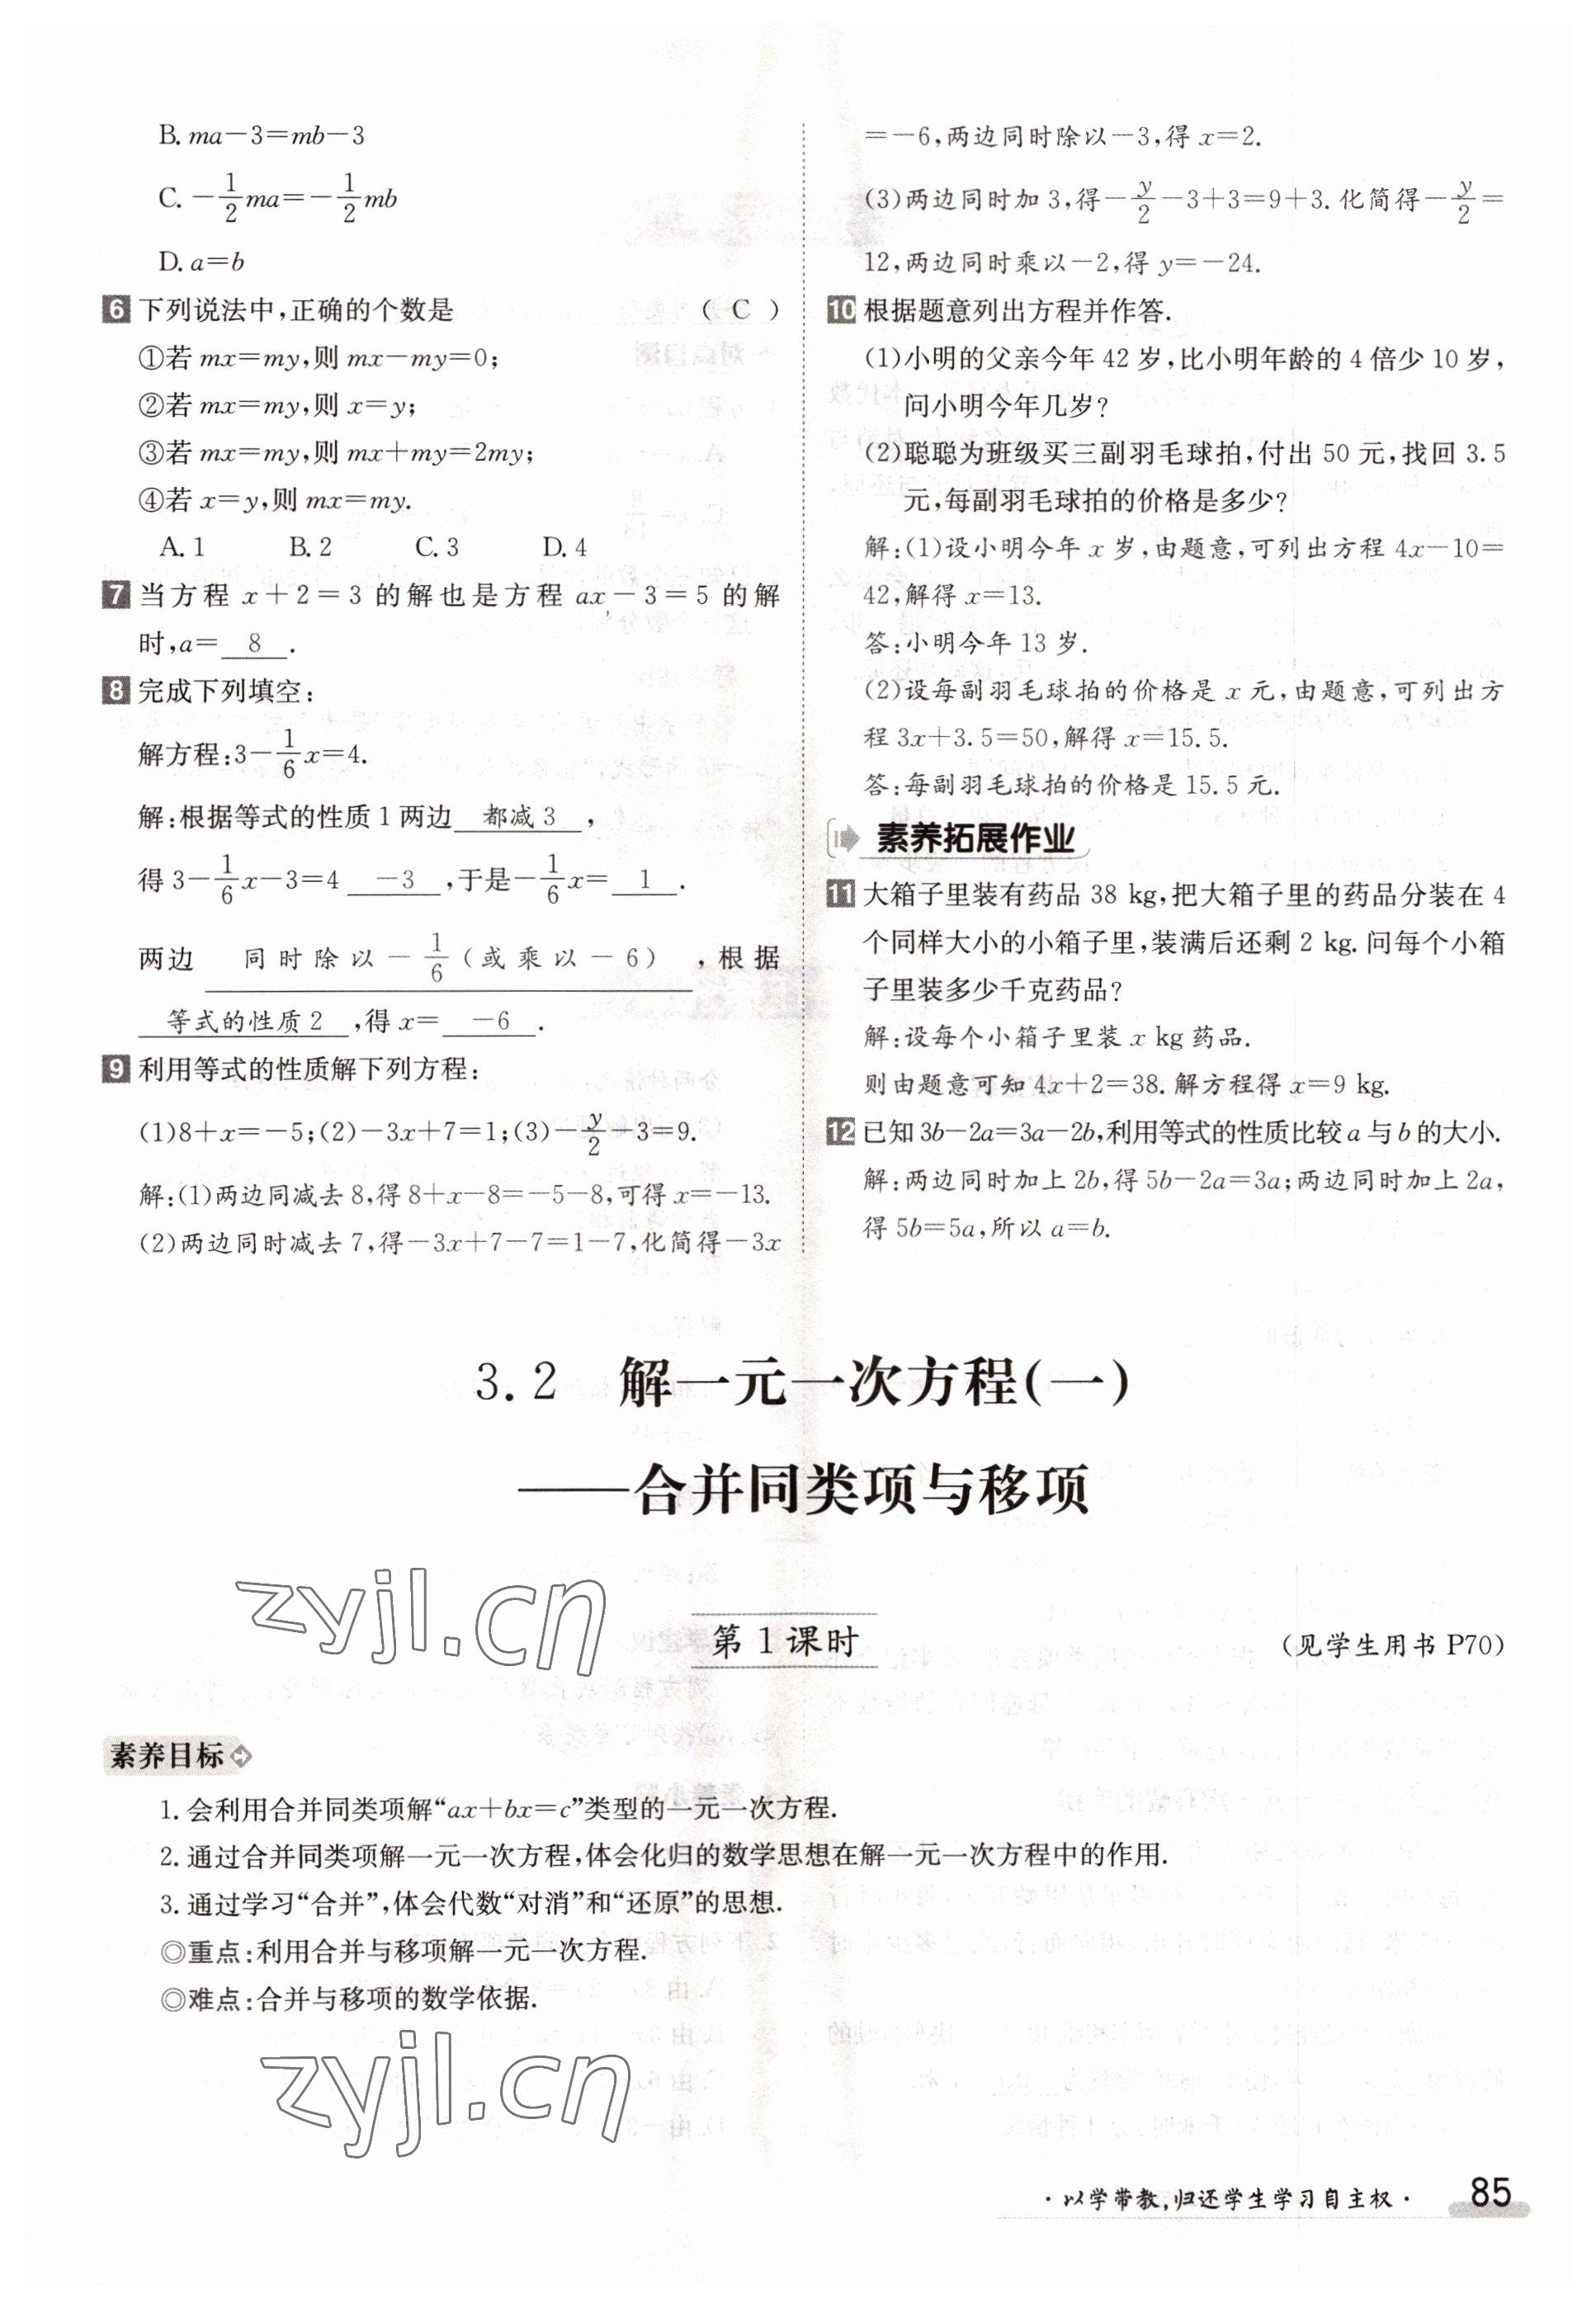 B. ma－3=mb－3
C. －1/2 ma=－1/2 mb
D. a=b
6 下列说法中,正确的个数是 ( C )
①若 mx=my,则 mx－my=0;
②若 mx=my,则 x=y;
③若 mx=my,则 mx+my=2my;
④若 x=y,则 mx=my.
A. 1 B. 2 C. 3 D. 4
7 当方程 x+2=3 的解也是方程 ax－3=5 的解
时,a= 8 .
8 完成下列填空:
解方程:3－1/6 x=4.
解:根据等式的性质 1 两边 都减 3 ,
得 3－1/6 x－3=4 －3 ,于是－1/6 x= 1 .
两边 同时除以－1/6(或乘以－6) ,根据
等式的性质 2 ,得 x= －6 .
9 利用等式的性质解下列方程:
(1)8+x=－5;(2)－3x+7=1;(3)－y/2－3=9.
解:(1)两边同减去 8,得 8+x－8=－5－8,可得 x=－13.
(2)两边同时减去 7,得－3x+7－7=1－7,化简得－3x
=－6,两边同时除以－3,得 x=2.
(3)两边同时加 3,得－y/2－3+3=9+3. 化简得－y/2=
12,两边同时乘以－2,得 y=－24.
10 根据题意列出方程并作答.
(1)小明的父亲今年 42 岁,比小明年龄的 4 倍少 10 岁,
问小明今年几岁?
(2)聪聪为班级买三副羽毛球拍,付出 50 元,找回 3.5
元,每副羽毛球拍的价格是多少?
解:(1)设小明今年 x 岁,由题意,可列出方程 4x－10=
42,解得 x=13.
答:小明今年 13 岁.
(2)设每副羽毛球拍的价格是 x 元,由题意,可列出方
程 3x+3.5=50,解得 x=15.5.
答:每副羽毛球拍的价格是 15.5 元.
素养拓展作业
11 大箱子里装有药品 38 kg,把大箱子里的药品分装在 4
个同样大小的小箱子里,装满后还剩 2 kg. 问每个小箱
子里装多少千克药品?
解:设每个小箱子里装 x kg 药品.
则由题意可知 4x+2=38. 解方程得 x=9 kg.
12 已知 3b－2a=3a－2b,利用等式的性质比较 a 与 b 的大小.
解:两边同时加上 2b,得 5b－2a=3a;两边同时加上 2a,
得 5b=5a,所以 a=b.
3.2 解一元一次方程(一)
——合并同类项与移项
zyjl.cn
第 1 课时
(见学生用书 P70)
素养目标
1. 会利用合并同类项解“ax+bx=c”类型的一元一次方程.
2. 通过合并同类项解一元一次方程,体会化归的数学思想在解一元一次方程中的作用.
3. 通过学习“合并”,体会代数“对消”和“还原”的思想.
◎重点:利用合并与移项解一元一次方程.
◎难点:合并与移项的数学依据.
zyjl.cn
·以学带教,归还学生学习自主权· 85